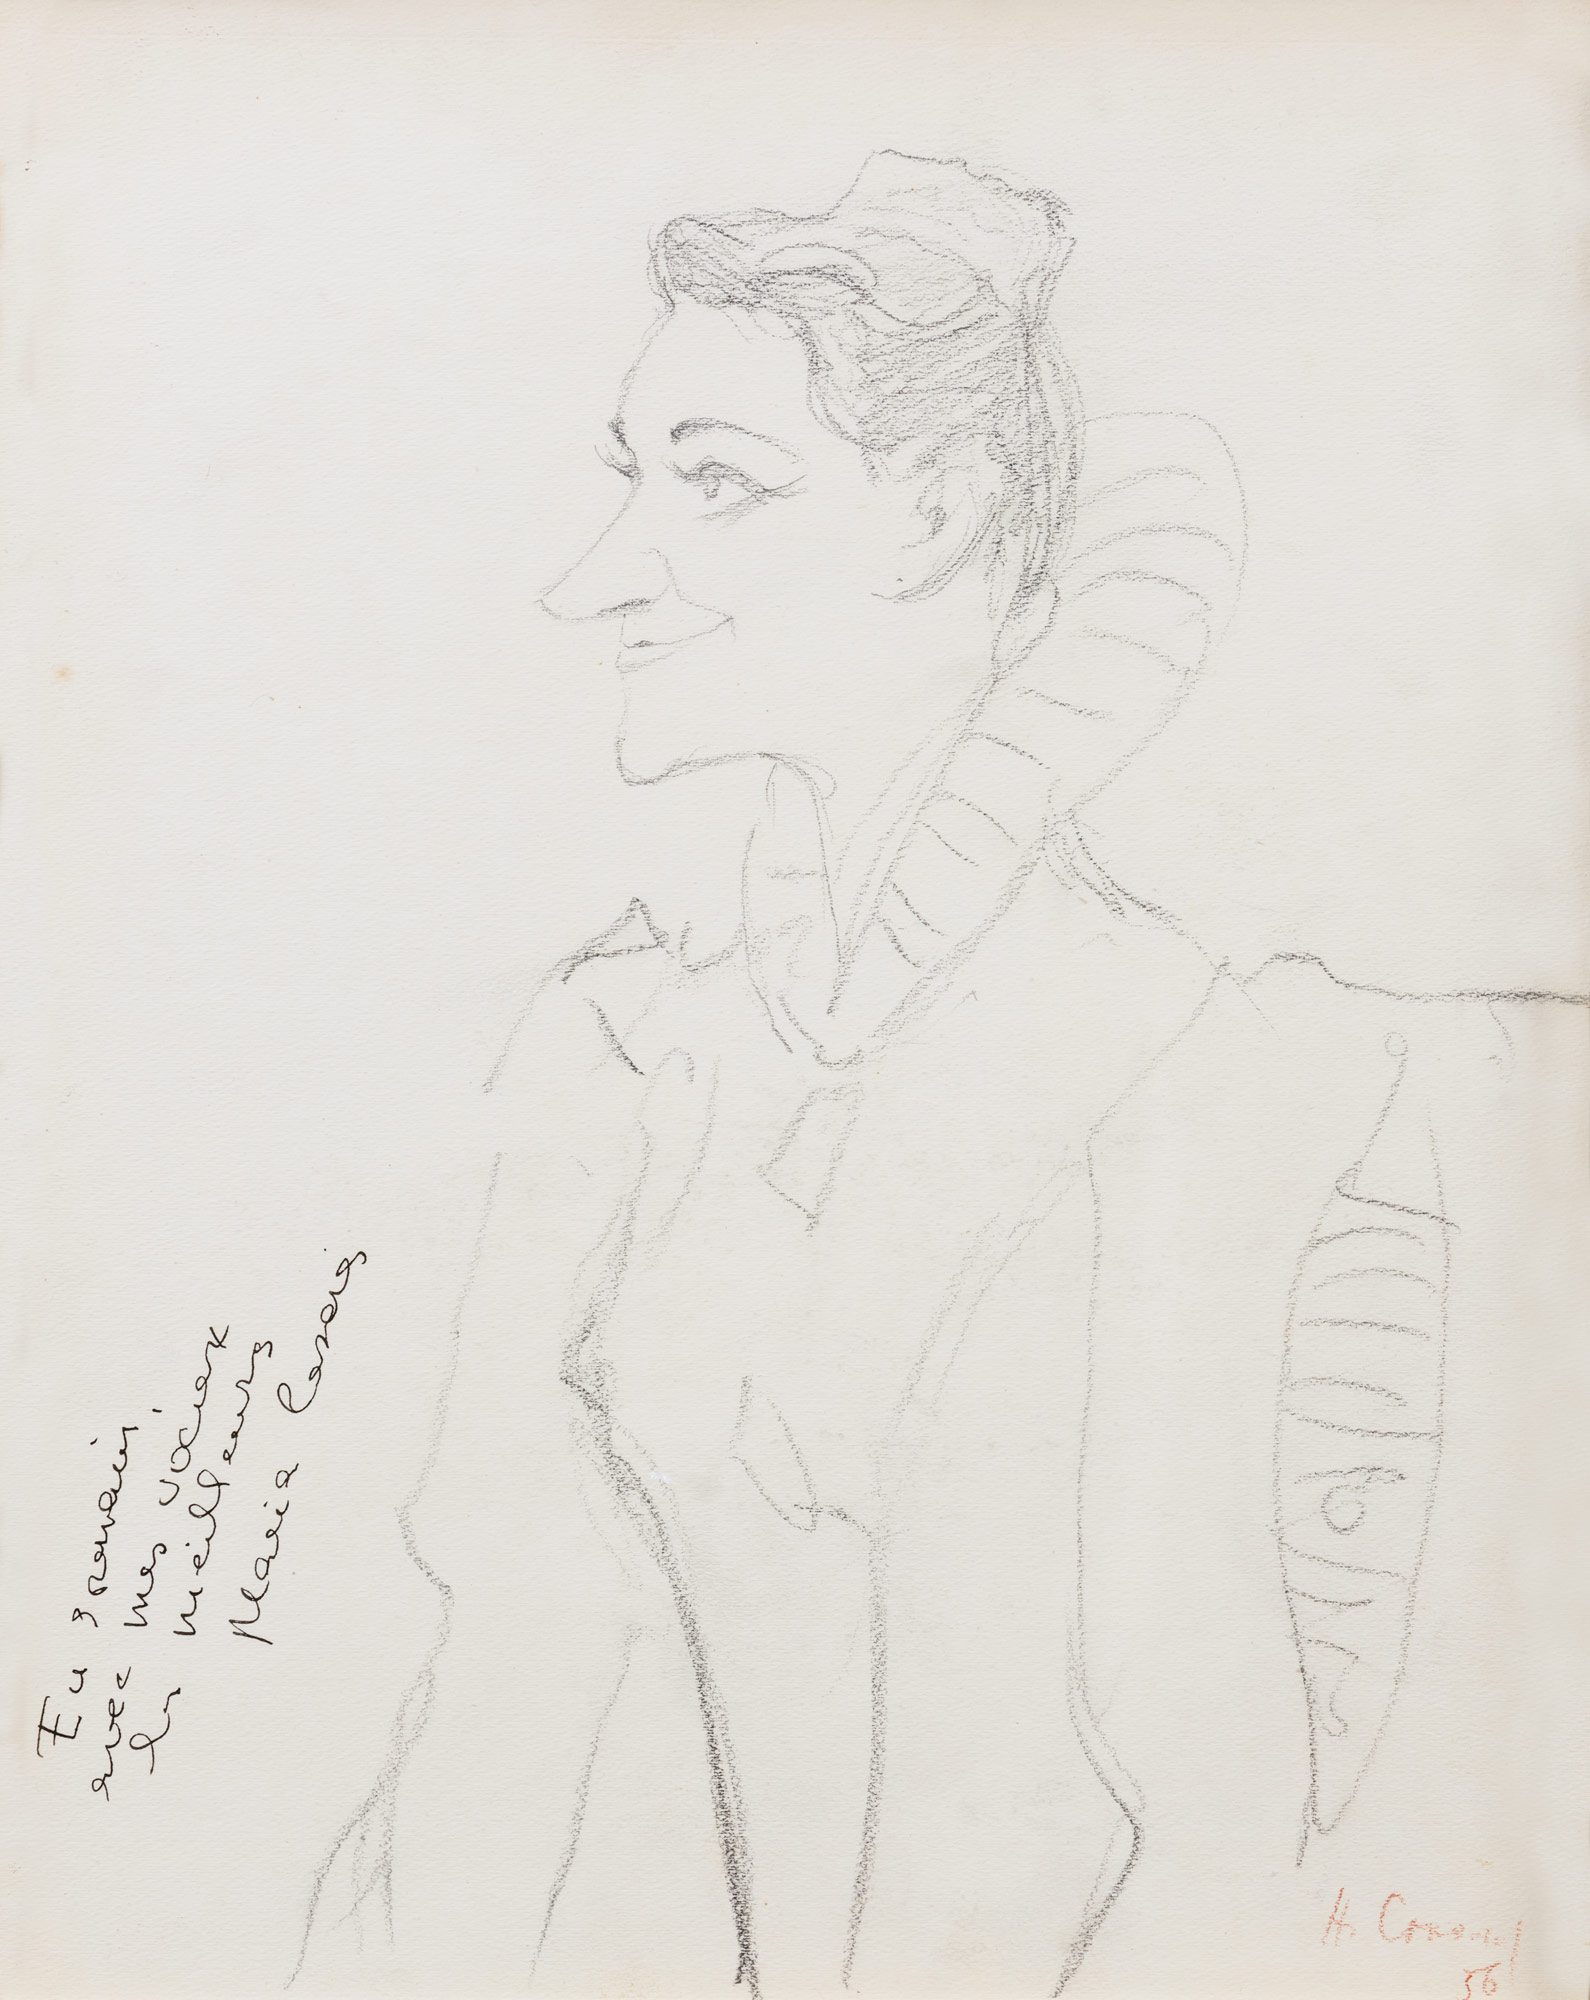 En souvenir,
avec mes voeux
les meilleurs
Maria Casarès
H.
56